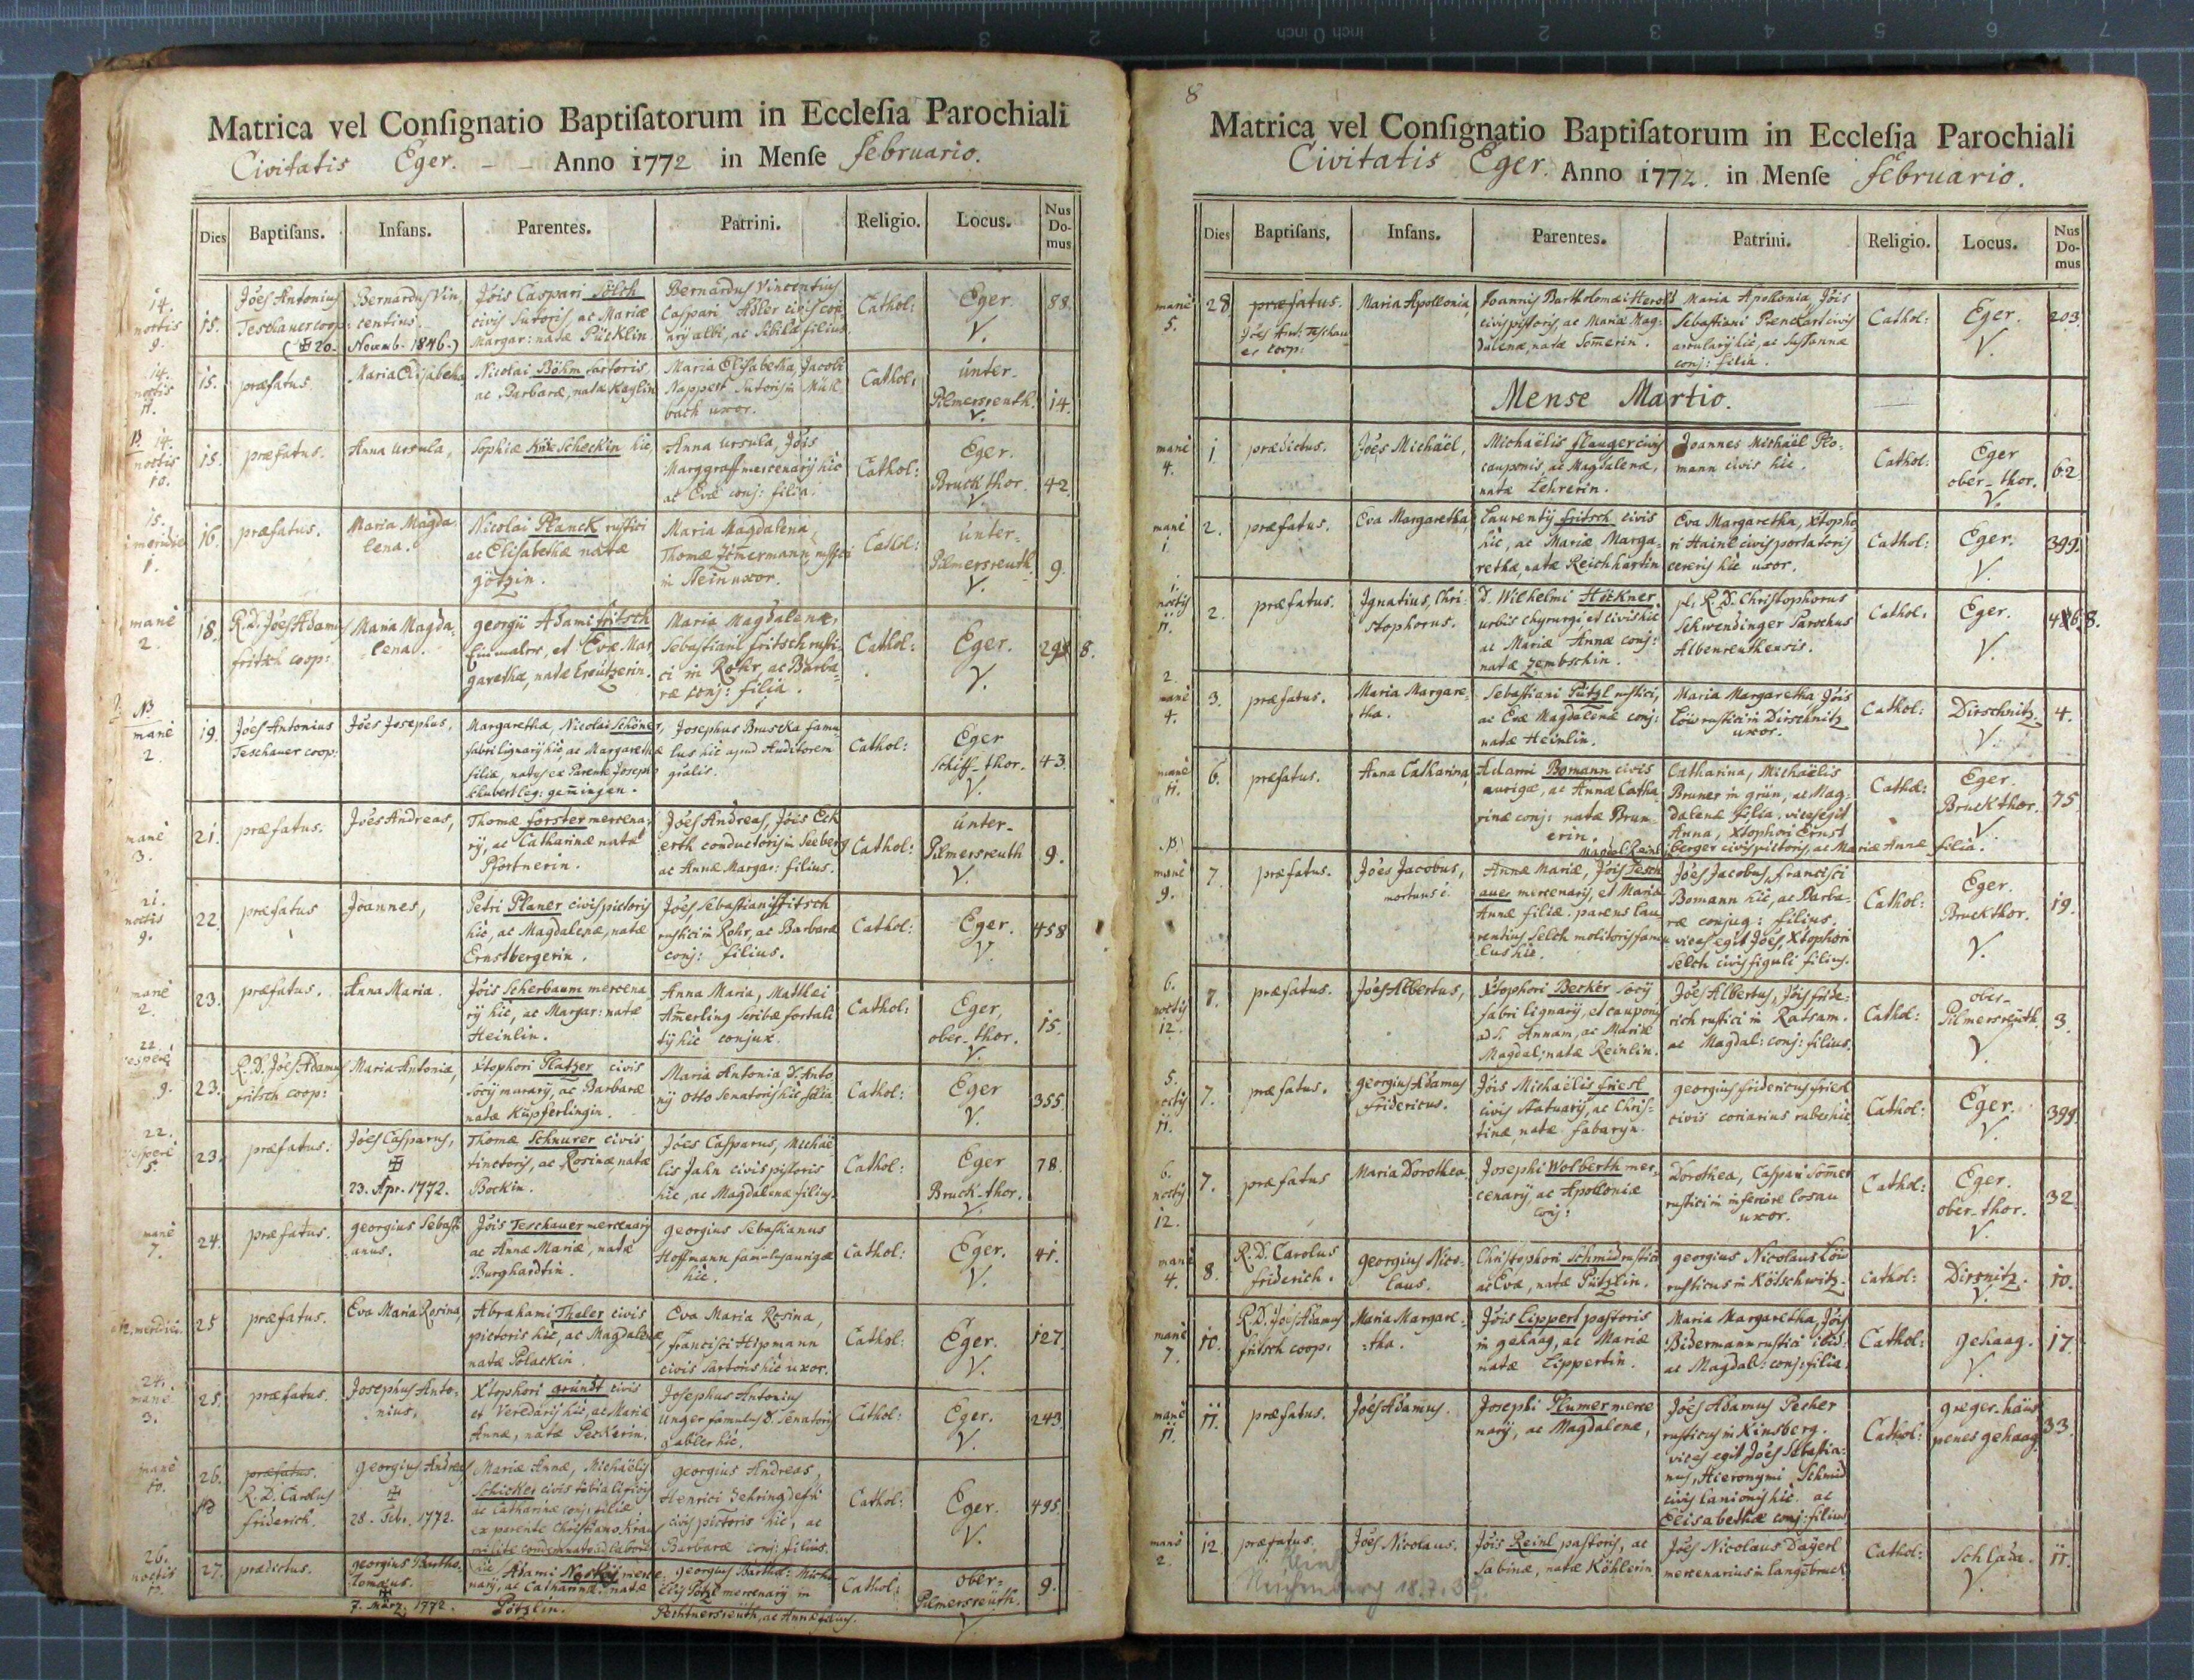 Matrica vel Conſignatio Baptiſatorum in Eccleſia Parochiali
Civitatis Eger. Anno 1772 in Menſe Februario.
Dies Baptiſans. Infans. Parentes. Patrini. Religio. Locus. Nus Do- mus
14. noctis 9.
15.
Jóes Antonius
Teschauer coop:
(20. Novemb. 1846.)
Bernardus Vin,
centius.
Jóis Caspari Sölch
civis Sutoris, ac Mariæ
Margar: natæ Pücklin
Bernardus Vincentius
Caspari Adler civis
albi, ac Sibilæ filius
Cathol:
Eger.
V.
88.
14. noctis 11.
15.
præfatus.
Maria Elisabetha
Nicolai Böhm sartoris
ac Barbaræ, natæ Kaylin
Maria Elisabetha, Jacobi
Nappert Sutoris in Mühl-
bach uxor.
Cathol:
unter-
Pilmersreuth.
V.
14.
14. noctis 10.
15.
præfatus.
Anna Ursula,
Sophiæ Scheckin hic,
Anna Ursula, Jóis
Marggraff mercenarij hic
ac Evæ conj: filia.
Cathol:
Eger.
Bruckthor.
V.
42.
15. meridie 1.
16.
præfatus.
Maria Magda
lena.
Nicolai Planck rustici
ac Elisabethæ natæ
götzin.
Maria Magdalena,
Thomæ Zim̄ermann, rustici
uxor.
Cathol:
unter-
Pilmersreuth
V.
9.
manè 2.
18.
R. D. Jóes Adamus
fritsch coop:
Maria Magda-
lena.
georgii Adami fritsch
et Evæ Mar
garethæ, natæ Creützerin.
Maria Magdalena,
Sebastiani fritsch rusti-
ci in Rohr, ac Barba-
ræ conj: filia.
Cathol:
Eger.
V.
298.
NB manè 2.
19.
Jóes Antonius
Teschauer coop:
Jóes Josephus.
Margaretha, Nicolai Schöner,
fabri lignarij hic, ac Margarethæ
filiæ, natus ex Parente Josepho
Schubert leg: gem̄ingen.
Josephus Bruscka famu
lus hic apud Auditorem
Cathol:
Eger
Schiff-thor.
V.
43.
manè 3.
21.
præfatus.
Jóes Andreas,
Thomæ forster mercena-
rij, ac Catharinæ natæ
Pfortnerin.
Jóes Andreas, Jóes Eck
erth conductoris in Seeberg
ac Annæ Margar: filius.
Cathol:
unter-
Pilmersreuth
V.
9.
21. noctis 9.
22.
præfatus
Joannes,
Petri Planer civis pictoris
hic, ac Magdalenæ, natæ
Ernstbergerin.
Jóes, Sebastiani fritsch
rustici in Rohr, ac Barbaræ
conj: filius.
Cathol:
Eger.
V.
458
manè 2.
23.
præfatus.
Anna Maria.
Jóis Scherbaum mercena
rij hic, ac Margar: natæ
Heinlin.
Anna Maria, Matthæi
Am̄erling scribæ
hic conjux.
Cathol:
Eger,
ober-thor.
V.
15.
22. vesperè 9.
23.
R. D. Jóes Adamus
fritsch coop:
Maria Antonia,
Xtophori Platzer civis
socij murarij, ac Barbaræ
natæ Kupferlingin.
Maria Antonia D. Anto
nij Otto Senatoris hic filia
Cathol:
Eger
V.
355.
22. vesperè 5.
23.
præfatus.
Jóes Casparus,
23. Apr. 1772.
Thomæ Schnurer civis
tinctoris, ac Rosinæ natæ
Bockin.
Jóes Casparus, Michaë
lis Jahn civis pistoris
hic, ac Magdalenæ filius.
Cathol:
Eger
Bruck-thor.
V.
78.
manè 7.
24.
præfatus.
georgius Sebasti
anus.
Jóis Teschauer mercenarij
ac Annæ Mariæ, natæ
Burghardtin.
georgius Sebastianus
Hoffmann famulus aurigæ
hic.
Cathol:
Eger.
V.
41.
12. meridie.
25
præfatus.
Eva Maria Rosina,
Abrahami Thaler civis
pictoris hic, ac Magdalenæ
natæ Polackin.
Eva Maria Rosina,
francisci Hipmann
civis Sartoris hic uxor.
Cathol:
Eger.
V.
127.
24. manè 3.
25.
præfatus.
Josephus Anto-
nius.
Xtophori gründt civis
et Veredarij hic, ac Mariæ
Annæ, natæ Pecherin.
Josephus Antonius
Unger famulus D. Senatoris
gabler hic.
Cathol:
Eger.
V.
243.
manè 10.
26.
præfatus.
R. D. Carolus
friderich.
georgius Andreas
28. Feb. 1772.
Mariæ Annæ, Michaëlis
Schicker civis
ac Catharinæ conj: filiæ
ex parente Christiano
georgius Andreas,
Henrici Zehring
civis pictoris hic, ac
Barbaræ conj: filius.
Cathol:
Eger.
V.
495.
26. noctis
27.
prædictus.
georgius Bartho-
lomæus.
7. März. 1772.
Adami merce-
narij, ac Catharinæ natæ
Pötzlin.
georgius Barthol: Micha
elis Pötzl mercenarij in
Pechtnersreüth, ac Annæ filius.
Cathol:
ober-
Pilmersreüth.
V.
9.
8
Matrica vel Conſignatio Baptiſatorum in Eccleſia Parochiali
Civitatis Eger. Anno 1772. in Menſe Februario.
Dies Baptiſans. Infans. Parentes. Patrini. Religio. Locus. Nus Do- mus
manè 5.
28
præfatus.
Jóes Ant: Teschau
er coop:
Maria Apollonia,
Joannis Bartholomæi Herold
civis pistoris, ac Mariæ Mag-
dalenæ, natæ Som̄erin.
Maria Apollonia, Jóis
Sebastiani civis
arcularij hic, ac Susannæ
conj: filia.
Cathol:
Eger.
V.
203.
Mense Martio.
manè 4.
1.
prædictus.
Jóes Michaël,
Michaëlis flauger civis
cauponis, ac Magdalenæ,
natæ Lehrerin.
Joannes Michaël Plo-
mann civis hic.
Cathol:
Eger
ober-thor.
V.
62.
manè 1.
2.
præfatus.
Eva Margaretha,
Laurentij fritsch civis
hic, ac Mariæ Marga-
rethæ, natæ Reichhartin
Eva Margaretha, Xtopho
ri Hainl civis portatoris
hic uxor.
Cathol:
Eger.
V.
399.
1. noctis 11.
2.
præfatus.
Ignatius, Chri-
stophorus.
D. Wilhelmi Höckner
urbis chyrurgi, et civis hic
ac Mariæ Annæ conj:
natæ Zembschin.
pl. R. D. Christophorus
Schwendinger Parochus
Albenreuthensis.
Cathol:
Eger.
V.
2. manè 4.
3.
præfatus.
Maria Margare-
tha.
Sebastiani Pützl rustici,
ac Evæ Magdalenæ conj:
natæ Heinlin.
Maria Margaretha Jóis
Löw rustici in Dirschnitz
uxor.
Cathol:
Dirschnitz.
V.
4.
manè 11.
6.
præfatus.
Anna Catharina,
Adami Bomann civis
aurigæ, ac Annæ Catha-
rinæ conj: natæ Brun-
erin.
Catharina, Michaëlis
Bruner in grün, ac Mag-
dalenæ filia. vices egit
Anna, Xtophori Ernst
berger civis pictoris, ac Mariæ Annæ filia.
Cathol:
Eger.
Bruckthor.
V.
75
NB manè 9.
7.
præfatus.
Jóes Jacobus,
mortuus é.
Annæ Mariæ, Jóis Tesch
auer mercenarij, et Mariæ
Annæ filiæ. parens Lau
rentius Selch molitoris famu
lus hic.
Jóes Jacobus, francisci
Bomann hic, ac Barba-
ræ conjug: filius.
vices egit Jóes, Xtophori
Selch civis figuli filius.
Cathol:
Eger.
Bruckthor.
V.
19.
6. noctis 12.
7.
præfatus.
Jóes Albertus,
Xtophori Becker socij
fabri lignarij, et cauponis
ad S. Annam, ac Mariæ
Magdal: natæ Reinlin.
Jóes Albertus, Jóis fride-
rich rustici in Ratsam.
ac Magdal: conj: filius.
Cathol:
ober-
Pilmersreüth.
V.
3.
5. noctis 11.
7.
præfatus.
georgius Adamus
fridericus.
Jóis Michaëlis friesl
civis statuarij, ac Chris-
tinæ, natæ
georgius fridericus friesl
civis coriarius ruber hic
Cathol:
Eger.
V.
399.
6. noctis 12.
7.
præfatus
Maria Dorothea
Josephi Wolberth mer-
cenarij, ac Apolloniæ
conj:
Dorothea, Caspari Som̄er
rustici in inferiore Losau
uxor.
Cathol:
Eger.
ober-thor.
V.
32.
manè 4.
8.
R. D. Carolus
friderich.
georgius Nico-
laus.
Christophori Schmid rustici
ac Evæ, natæ Pützlin.
georgius Nicolaus Löw
rusticus in Kötschwitz.
Cathol:
Dirsnitz.
V.
10.
manè 7.
10.
R. D. Jóes Adamus
fritsch coop:
Maria Margare-
tha.
Jóis Lippert pastoris
in gehaag, ac Mariæ
natæ Lippertin.
Maria Margaretha, Jóis
Bidermann rustici ibid:
ac Magdal: conj: filia.
Cathol:
gehaag.
V.
17.
manè 11.
11.
præfatus.
Jóes Adamus.
Josephi Plumer merce
narij, ac Magdalenæ,
Jóes Adamus Pecher
rusticus in Kinsberg.
vices egit Jóes Sebastia-
nus, Hieronymi Schmid
civis lanionis hic. ac
Elisabethæ conj: filius
Cathol:
greger-haüs
penes gehaag.
33.
manè 2.
12.
præfatus.
Jóes Nicolaus.
Jóis Reinl pastoris, ac
Sabinæ, natæ Köhlerin
Jóes Nicolaus Däyerl
mercenarius in langebruck
Cathol:
Schlada.
V.
11.